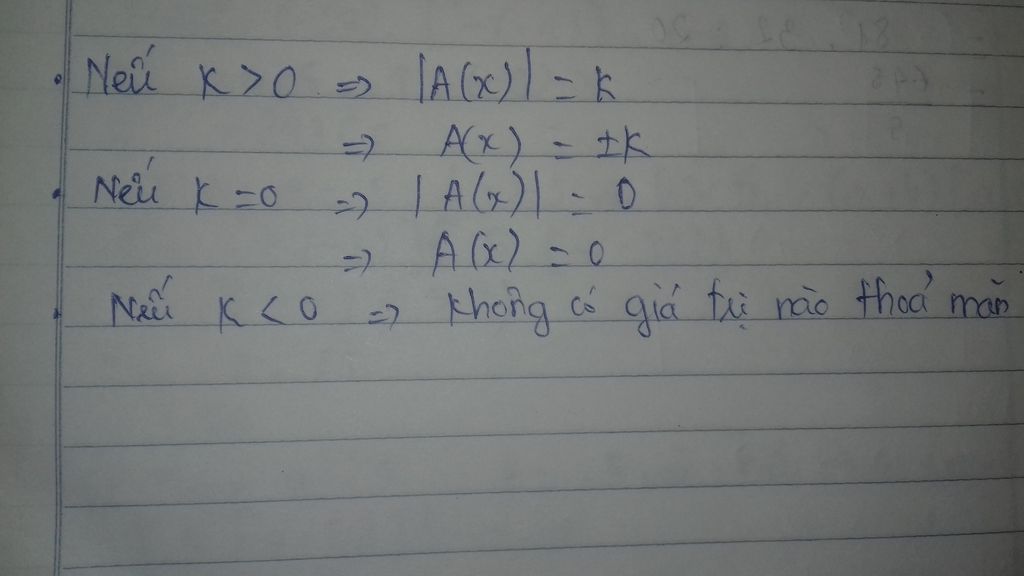 Nếu K > 0 => |A(x)| = K
=> A(x) = ±K
Nếu K = 0 => |A(x)| = 0
=> A(x) = 0
Nếu K < 0 => không có giá trị nào thoả mãn